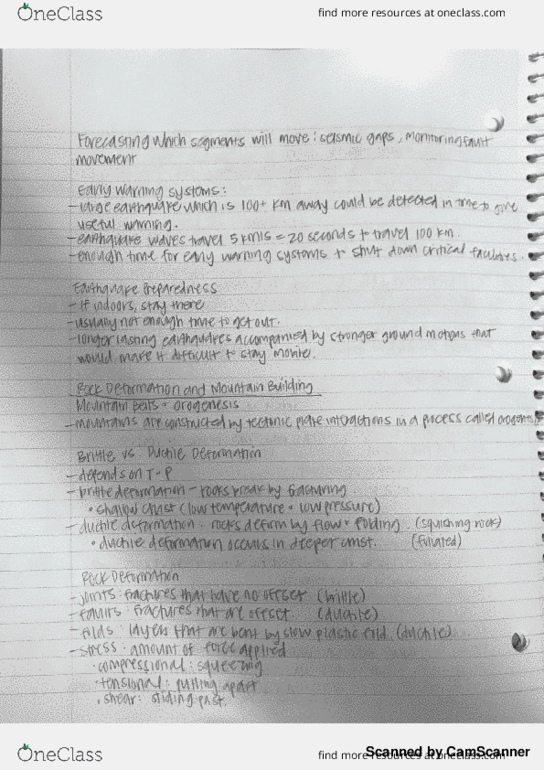 OneClass
find more resources at oneclass.com
Forecasting which segments will move : seismic gaps, monitoring fault
movement
Early warning systems :
- large earthquake which is 100+ km away could be detected in time to give
useful warning.
- earthquake waves travel 5 km/s = 20 seconds to travel 100 km.
- enough time for early warning systems to shut down critical facilities.
Earthquake Preparedness
- If indoors, stay there
- usually not enough time to get out.
- longer lasting earthquakes accompanied by stronger ground motions that
would make it difficult to stay
Rock Deformation and Mountain Building
Mountain Belts + orogenesis
- mountains are constructed by tectonic plate interactions in a process called
Brittle vs. Ductile Deformation
- depends on T + P
- brittle deformation - rocks break by fracturing
• shallow crust (low temperature + low pressure)
- ductile deformation : rocks deform by flow + folding . (squishing rock)
• ductile deformation occurs in deeper crust. (foliated)
Rock Deformation
- joints : fractures that have no offset (brittle)
- faults : fractures that are offset (ductile)
- folds : layers that are bent by slow plastic (ductile)
- stress : amount of force applied
• compressional : squeezing
• tensional : pulling apart
• shear : sliding past.
OneClass
find more resources at oneclass.com
Scanned by CamScanner